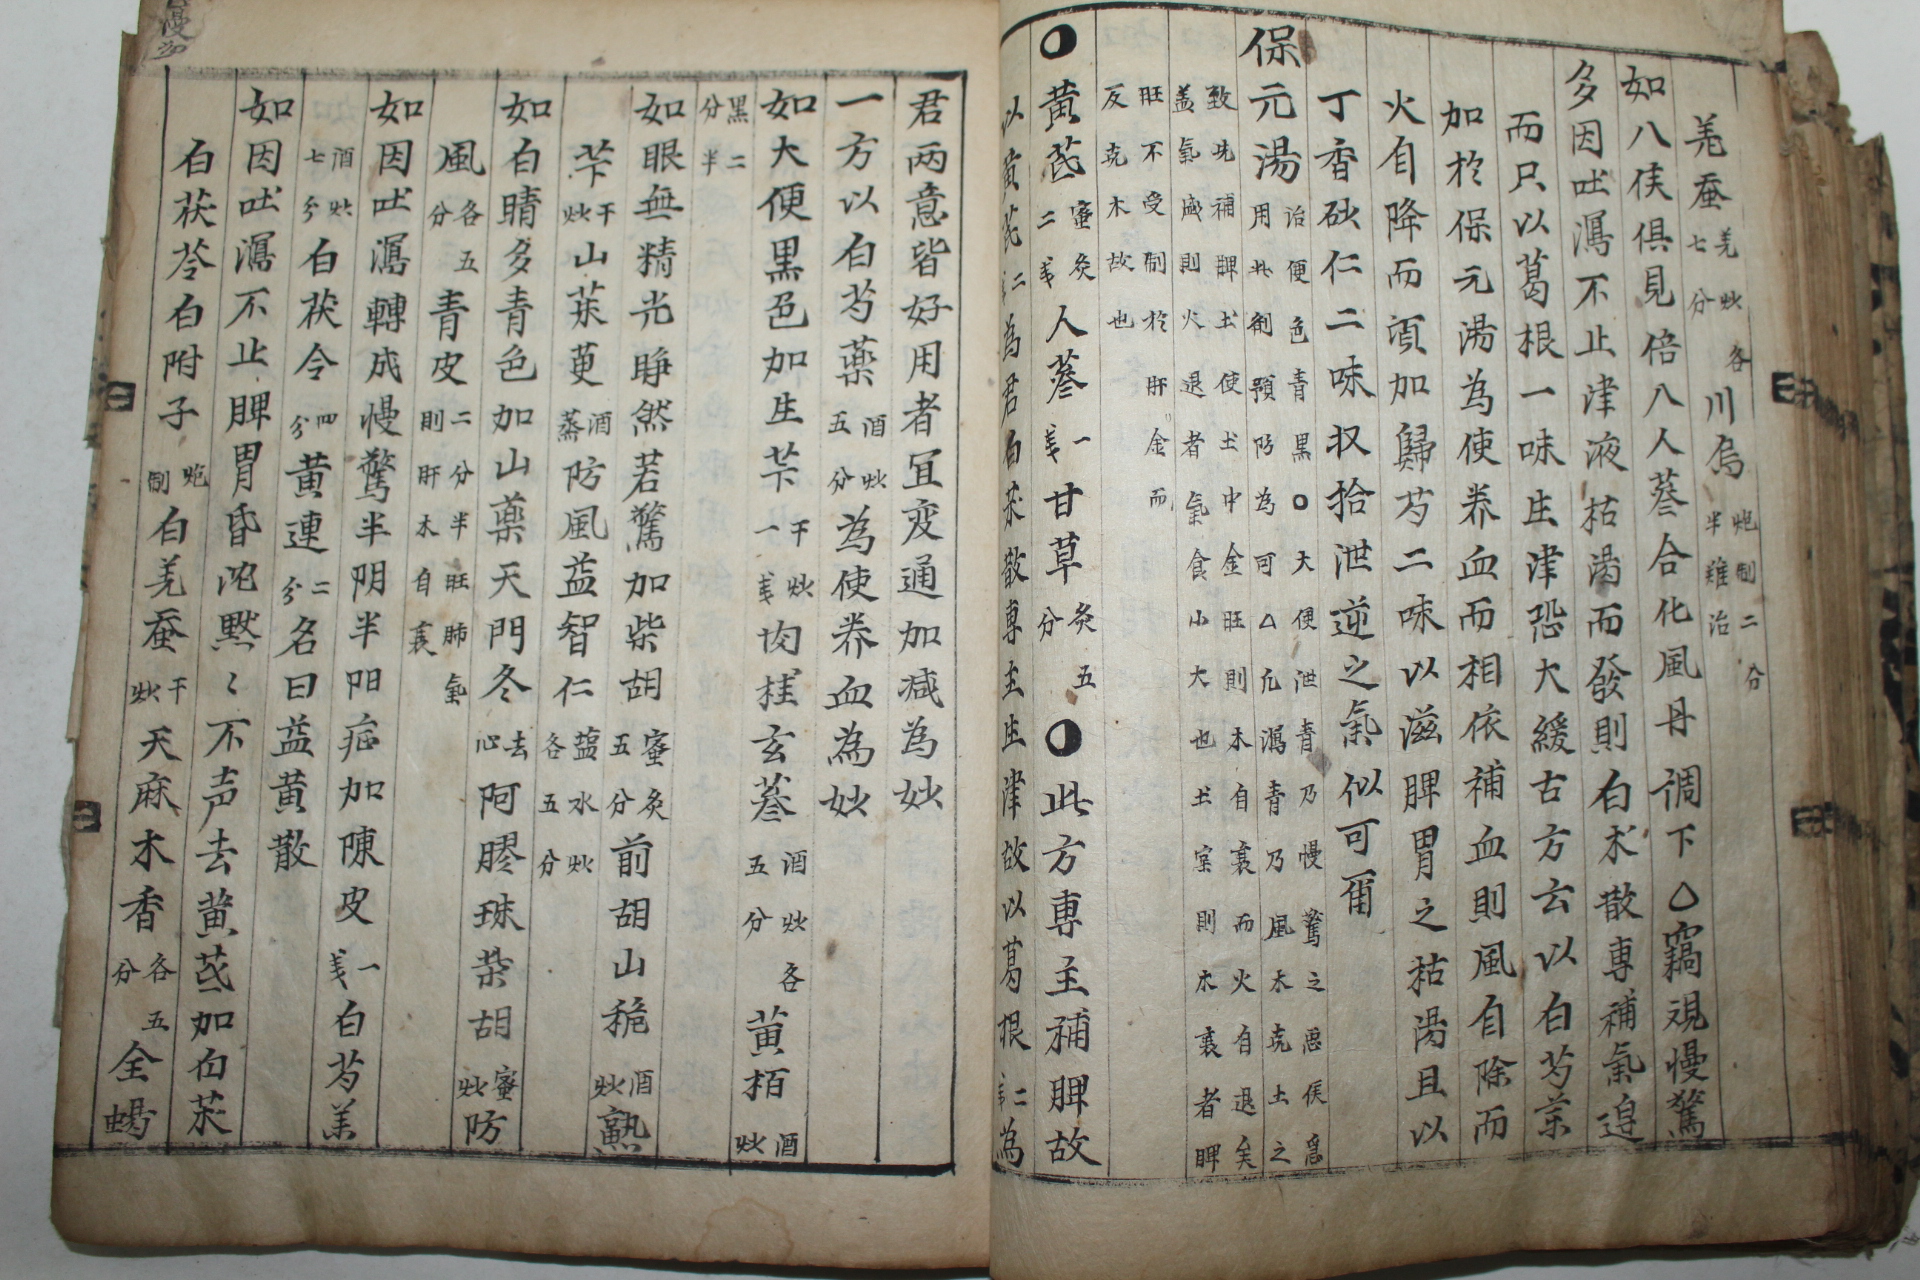 羌蚕羌炒各七分川烏炮制二分半難治
如八侯俱見倍人蔘合化風丹調下△竊覌慢驚
多因吐瀉不止津液枯渴而發則白朮散專補氣追
而只以葛根一味生津恐大緩古方云以白芍薬
加於保元湯為使养血而相依補血則風自除而
火自降而湏加歸芍二味以滋脾胃之枯渴且以
丁香砂仁二味収拾泄逆之氣似可爾
保元湯治便色青黒○大便泄青乃慢驚之悪侯急
用此劑預防為可△凢瀉青乃風木克土之
致先補脾土使土中金旺則木自衰而火自退矣
盖氣盛則火退者氣食小大也土宲則木衰者脾
旺不受制於肝金而
反克木故也
○黄芪蜜灸二戔人蔘一戔甘草灸五分○此方専主補脾故
以黄芪二戔為君白茶散専主生津故以葛根二戔為
君两意皆好用者宜变通加减為妙
一方以白芍藥酒炒五分為使养血為妙
如大便黒色加生芐干炒一戔肉桂玄蔘酒炒各五分黄栢酒炒
黒二分半
如眼無精光睁然若驚加柴胡蜜灸五分前胡山稔酒炒熟
芐干炒山茱萸酒蒸防風益智仁盐水炒各五分
如白睛多青色加山藥天門冬去心阿膠珠柴胡蜜炒防
風各五分青皮二分半旺肺氣則肝木自衰
如因吐瀉轉成慢驚半阴半阳症加陳皮一戔白芍羗
酒炒七分白茯令四分黄連二分名曰益黄散
如因吐瀉不止脾胃昏沈黙〻不声去黄芪加白茱
白茯苓白附子炮制白羌蚕干炒天麻木香各五分全蝎